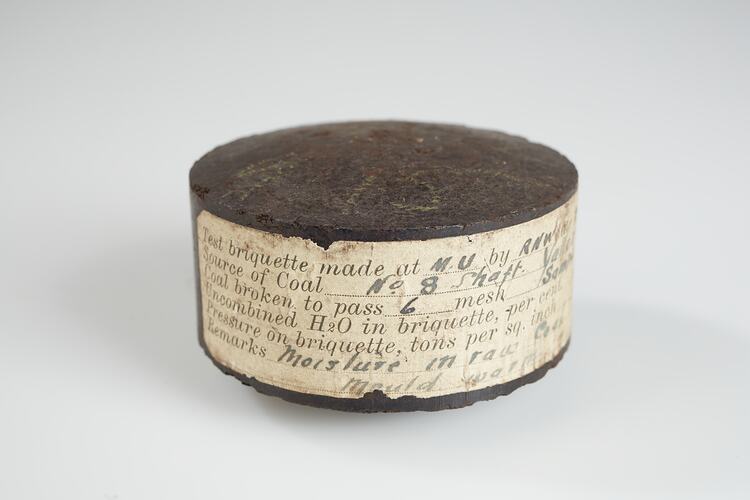 Test briquette made at M.U by
Source of Coal No 8 Shaft.
Coal broken to pass 6 mesh
Uncombined H2O in briquette, per cent
Pressure on briquette, tons per sq. inch
Remarks Moisture in raw
Mould